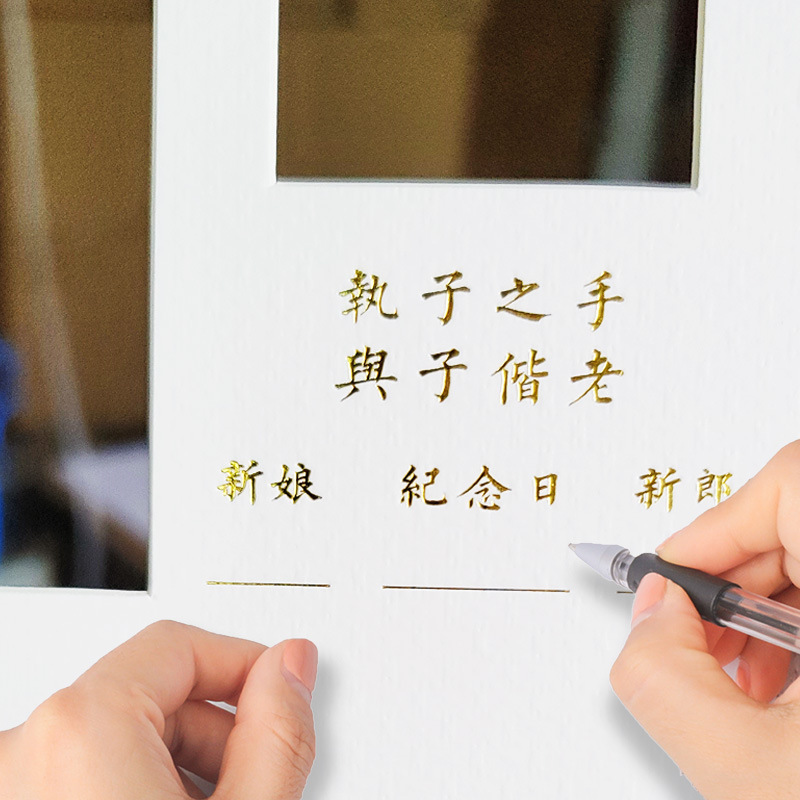 執子之手
與子偕老
新娘 紀念日 新郎